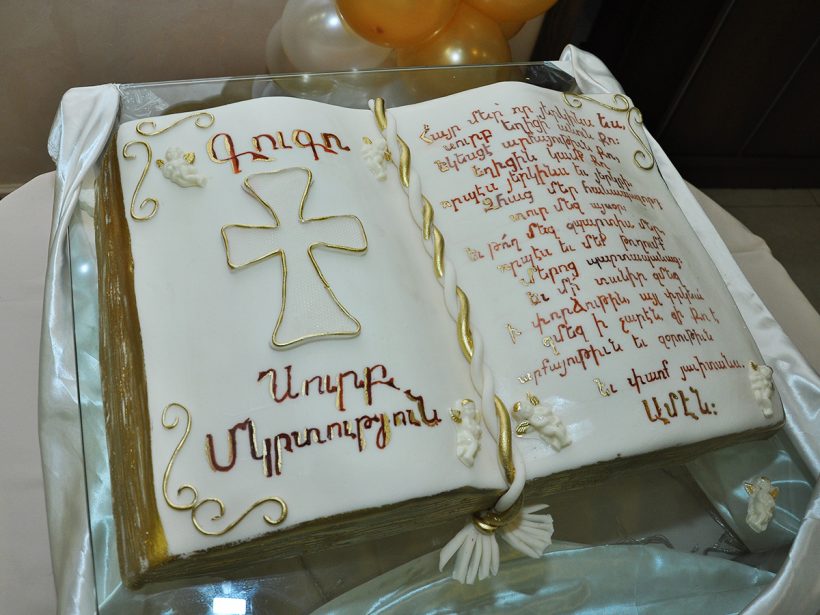 Գուգօ
Սուրբ
Մկրտություն
Հայր մեր՝ որ յերկինս ես,
սուրբ եղիցի անուն քո
եկեսցէ արքայութիւն քո
եղիցին կամք քո
որպէս յերկինս եւ յերկրի
Զհաց մեր հանապազորդ
տուր մեզ այսօր
եւ թող մեզ զպարտիս մեր
որպէս եւ մեք թողումք
մերոց պարտապանաց
եւ մի տանիր զմեզ
ի փորձութիւն այլ փրկեա
զմեզ ի չարէն զի քո է
արքայութիւն եւ զօրութիւն
եւ փառք յաւիտեանս
Ամէն: